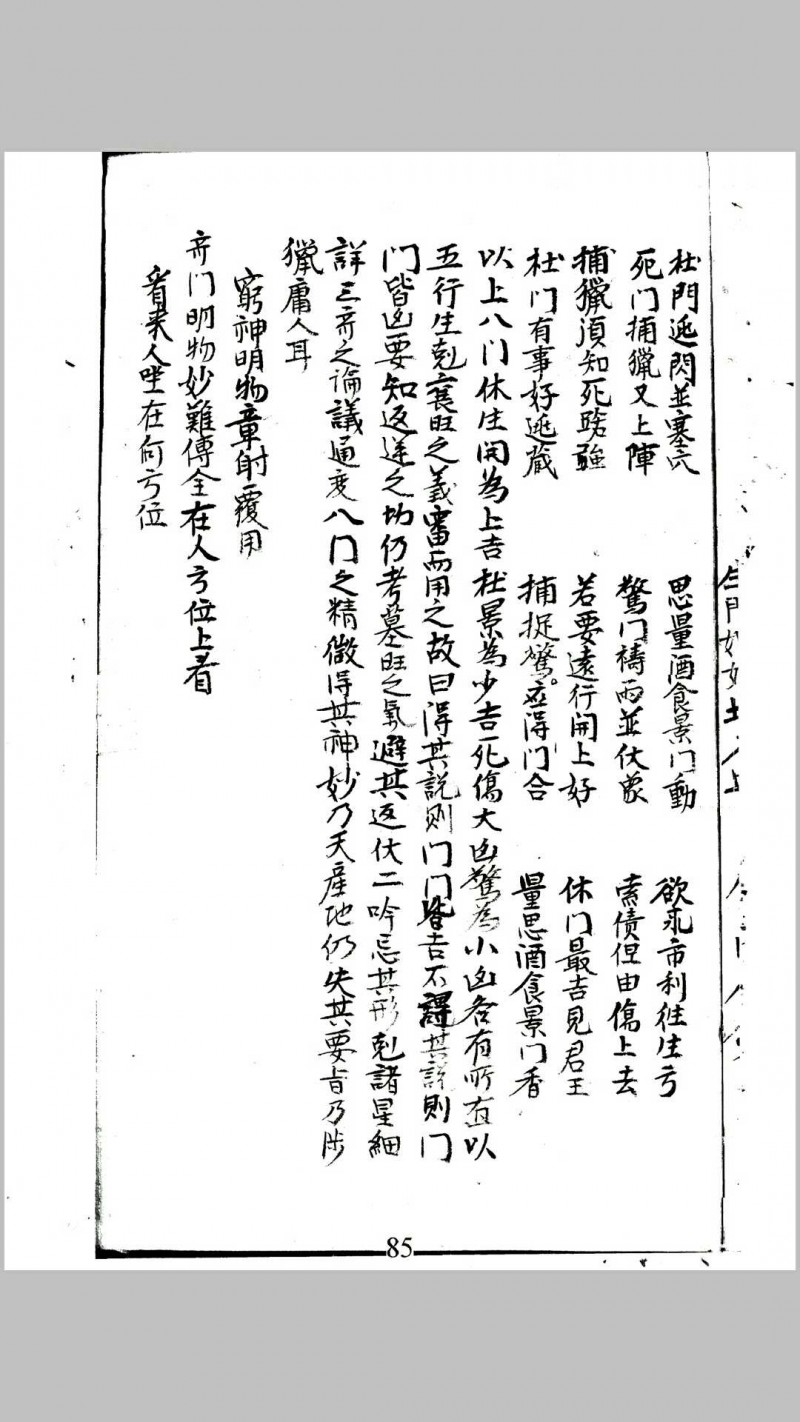 杜門逃閃並塞穴 思量酒食景门動 欲求市利往生方
死门捕獵又上陣 驚门禱雨並伏蒙 索债但由傷上去
捕獵湏知死路強 若要遠行開上好 休门最吉見君王
杜门有事好逃藏 捕捉驚。應得门合 量思酒食景门香
以上八门休生開為上吉杜景為少吉死傷大凶驚為小凶各有所宜以
五行生剋衰旺之義審而用之故曰得其說則门门皆吉不得其說則门
门皆凶要知返迷之切仍考墓旺之氣避其返伏二吟忌其形剋諸星細
詳三奇之論議通度八门之精微得其神妙乃天産地仍失其要旨乃涉
獵庸人耳
窮神明物章射覆用
奇门明物妙難傳全在人方位上看
看来人坐在何方位
85